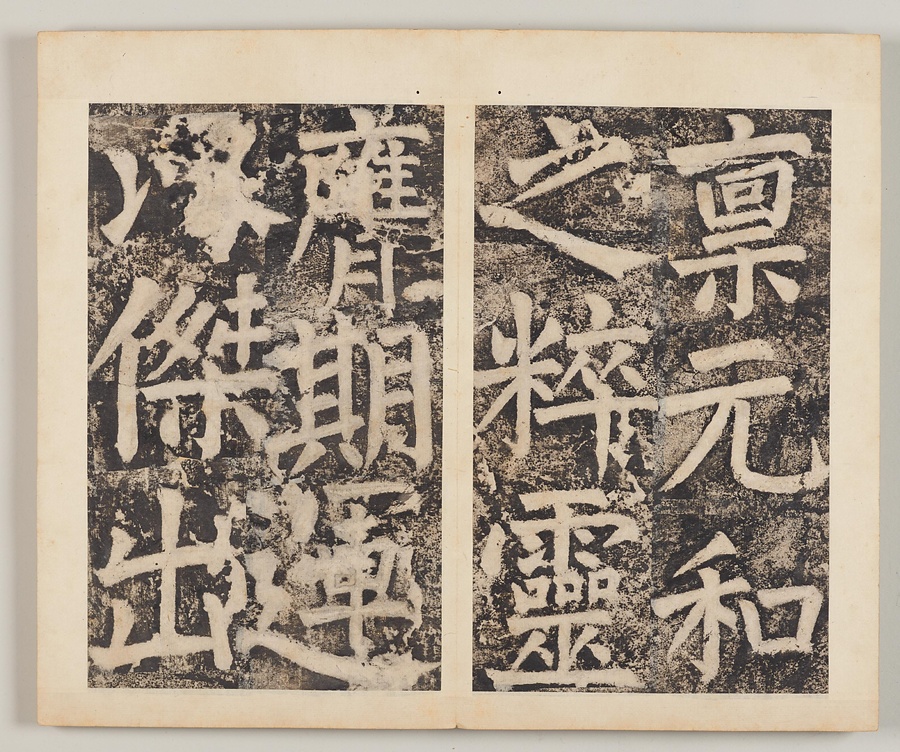 禀元和
之粹靈
膺期運
以傑出